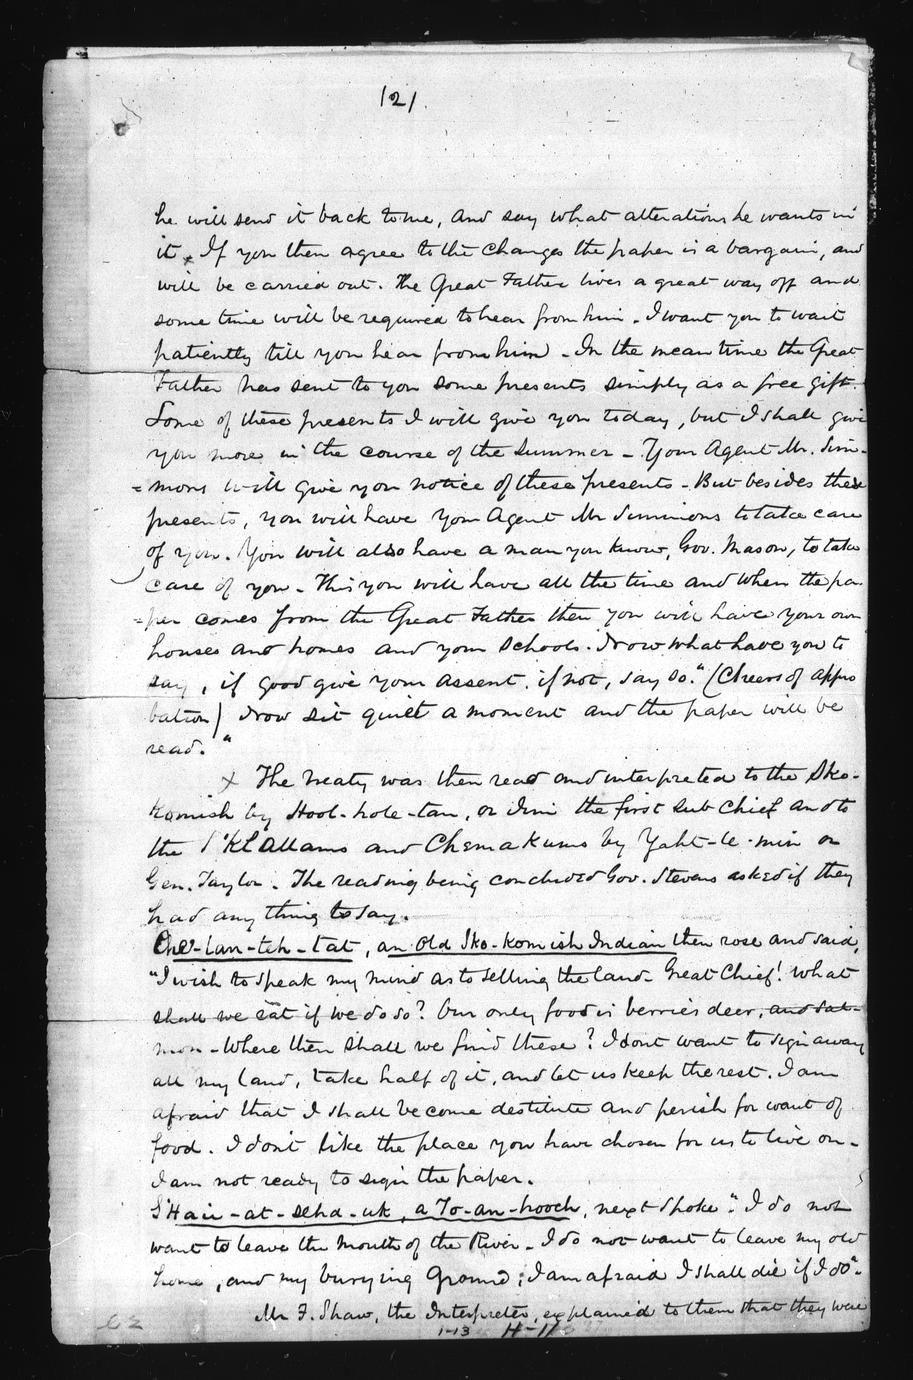 121.
he will send it back to me, and say what alterations he wants in
it x If you then agree to the changes the paper is a bargain, and
will be carried out. The Great Father lives a great way off and
some time will be required to hear from him - I want you to wait
patiently till you hear from him - In the mean time the Great
Father has sent to you some presents simply as a free gift.
Some of these presents I will give you today, but I shall give
you more in the course of the Summer - Your Agent Mr. Sim-
=mons will give you notice of these presents - But besides these
presents, you will have your Agent Mr Simmons to take care
of you. You will also have a man you know, Gov. Mason, to take
care of you - This you will have all the time and when the pa-
=per comes from the Great Father then you will have your own
houses and homes and your schools. Now what have you to
say, if good give your assent, if not, say so." (Cheers of appro
bation) Now sit quiet a moment and the paper will be
read."
x The treaty was then read and interpreted to the Sko-
komish by Hool-hole-tan, or Jim the first sub Chief and to
the S'Kl'allams and Chemakums by Yaht-le-min or
Gen. Taylor. The reading being concluded Gov. Stevens asked if they
had any thing to say.
Che-lan-teh-tat, an old Sko-komish Indian then rose and said,
"I wish to speak my mind as to selling the land - Great Chief! What
shall we eat if we do so? Our only food is berries deer, and sal-
mon - Where then shall we find these? I dont want to sign away
all my land, take half of it, and let us keep the rest. I am
afraid that I shall become destitute and perish for want of
food. I don't like the place you have chosen for us to live on -
I am not ready to sign the paper.
S'Hau-at-seha-uk, a To-an-hooch, next spoke". I do not
want to leave the mouth of the River - I do not want to leave my old
home, and my burying Ground; I am afraid I shall die if I do".
Mr F. Shaw, the Interpreter, explained to them that they were
1-13 H-11